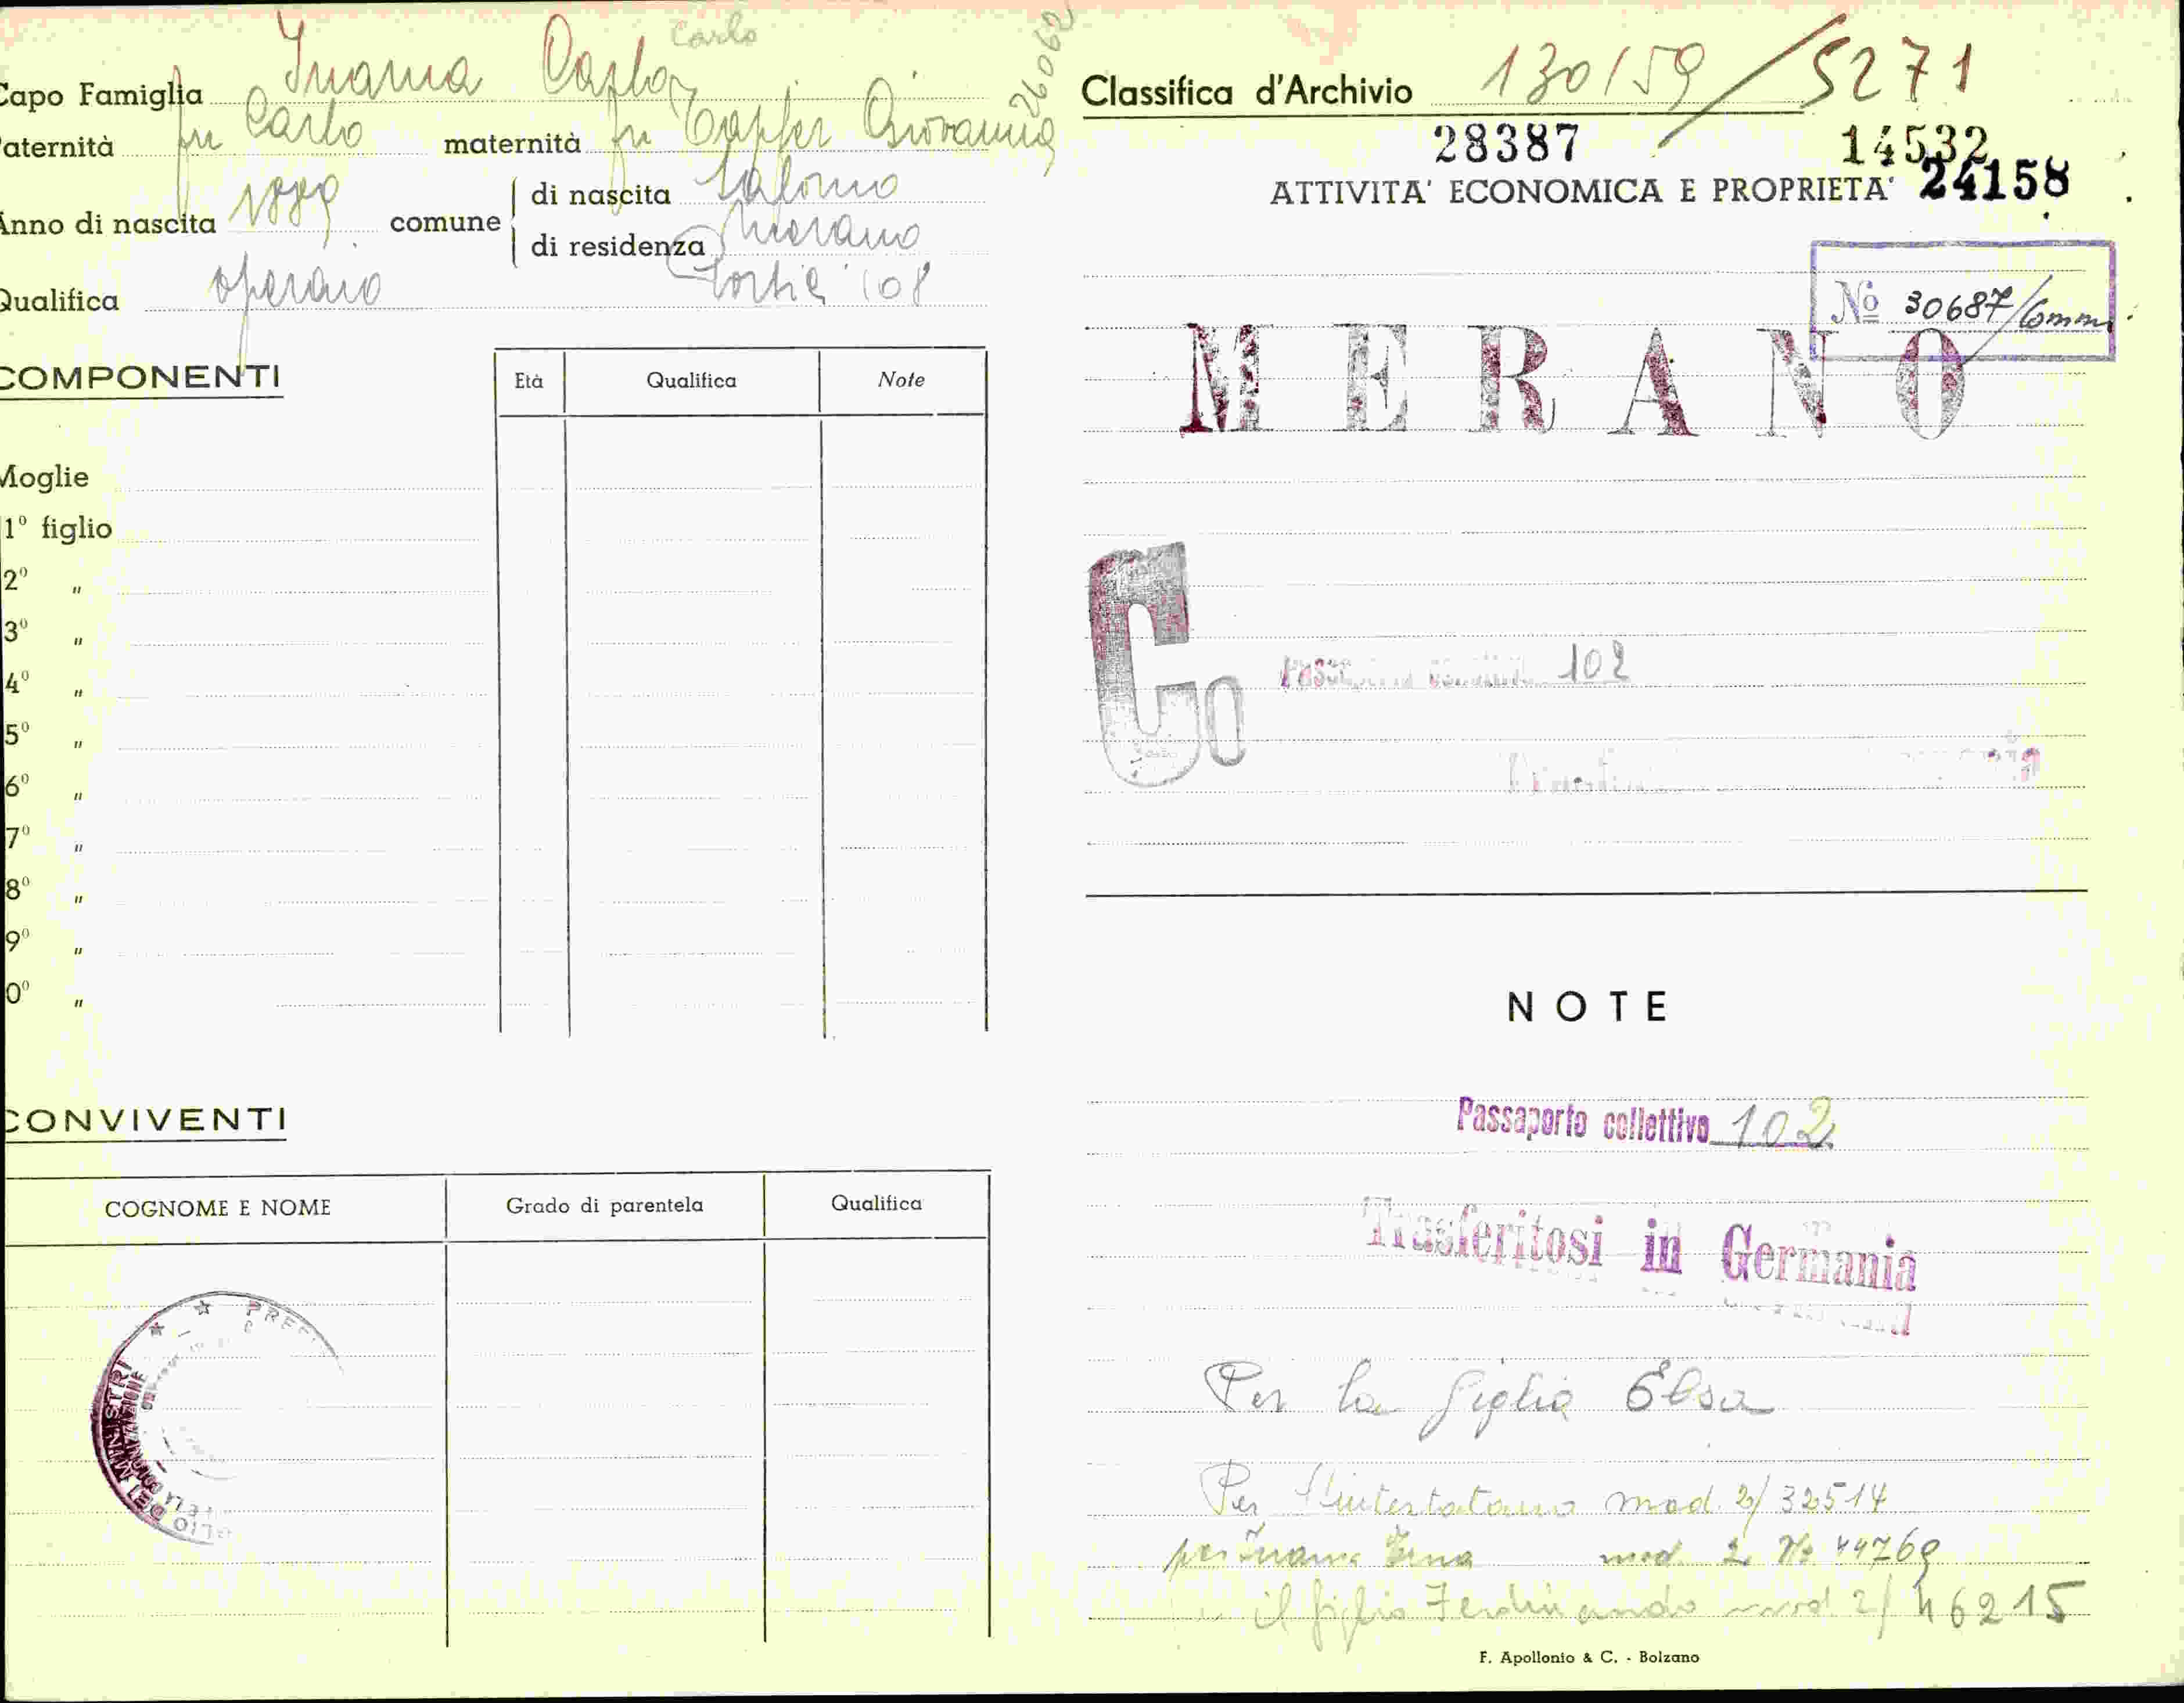 Capo Famiglia Inama Carlo
Carlo
26062
Paternità fu Carlo maternità fu Topfer Giovanna
Anno di nascita 1889 comune di nascita Salorno
di residenza Merano
Portici 108
Qualifica operaio
COMPONENTI
Età Qualifica Note
Moglie
1° figlio
2° "
3° "
4° "
5° "
6° "
7° "
8° "
9° "
0° "
CONVIVENTI
COGNOME E NOME Grado di parentela Qualifica
PREF
DEI MINISTRI
Classifica d'Archivio 130159/5271
28387 14532
24158
ATTIVITA' ECONOMICA E PROPRIETA'
No 30687/Comm
MERANO
Co
102
NOTE
Passaporto collettivo 102
Trasferitosi in Germania
Per la figlia Elsa
Per l'intestatario mod. 2/32514
per Inama Erna mod. 2 No 44769
il figlio Ferdinando mod 2/46215
F. Apollonio & C. - Bolzano